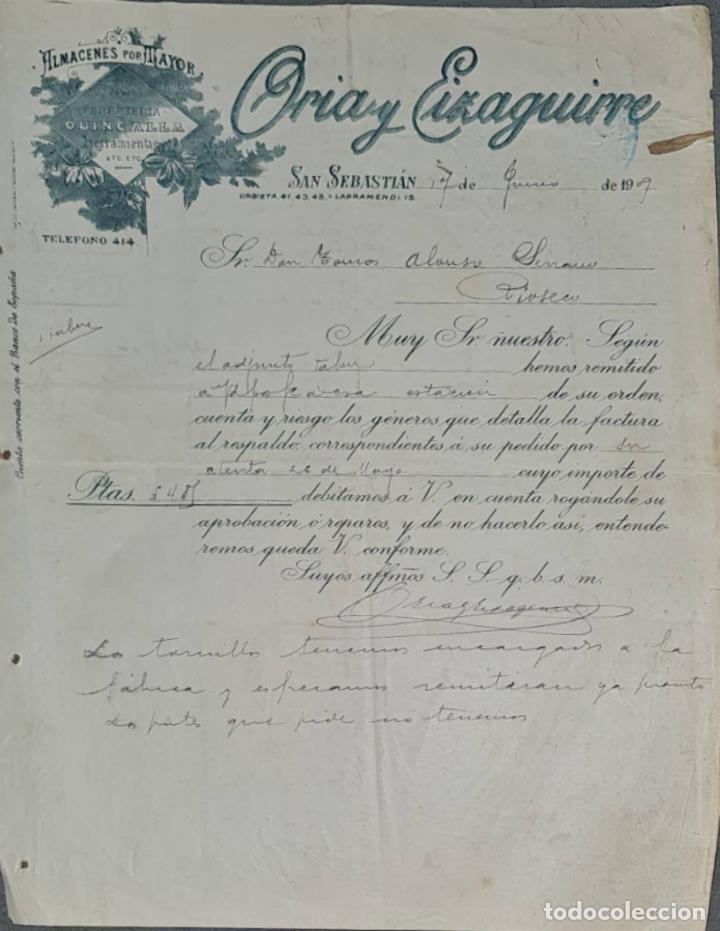 ALMACENES POR MAYOR
FERRETERIA
QUINCALLA
Herramientas
ETC. ETC.
TELEFONO 414.
Oria y Eizaguirre
SAN SEBASTIÁN 17 de Junio de 1909
URBIETA, 41. 43. 45. = LARRAMENDI. 15.
Sr. Don Alonso Serrano
Rioseco
Cuenta corriente con el Banco de España
Muy Sr. nuestro: Según
el adjunto talon hemos remitido
estación de su orden,
cuenta y riesgo los géneros que detalla la factura
al respaldo correspondientes á su pedido por su
atenta 26 de Mayo cuyo importe de
Ptas. debitamos á V. en cuenta rogándole su
aprobación ó reparos, y de no hacerlo asi, entende-
remos queda V. conforme.
Suyos affmos. S. S. q. b. s. m.
Oria y Eizaguirre
Los tornillos tenemos encargados a la
fábrica y esperamos remitiran ya pronto
Los que pide no tenemos.
todocoleccion.net